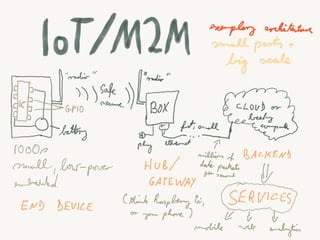 IoT/M2M
exemplary architecture
small parts,
big scale
"radio"
"radio"
safe
name
IC
GPIO
battery
BOX
CLOUD or
beefy
compute
plug
ethernet
fast, small
1000s
small, low-power
embedded
END DEVICE
HUB/
GATEWAY
(think Raspberry Pi,
or your phone)
millions of
data packets
per second
BACKEND
SERVICES
mobile
web
analytics